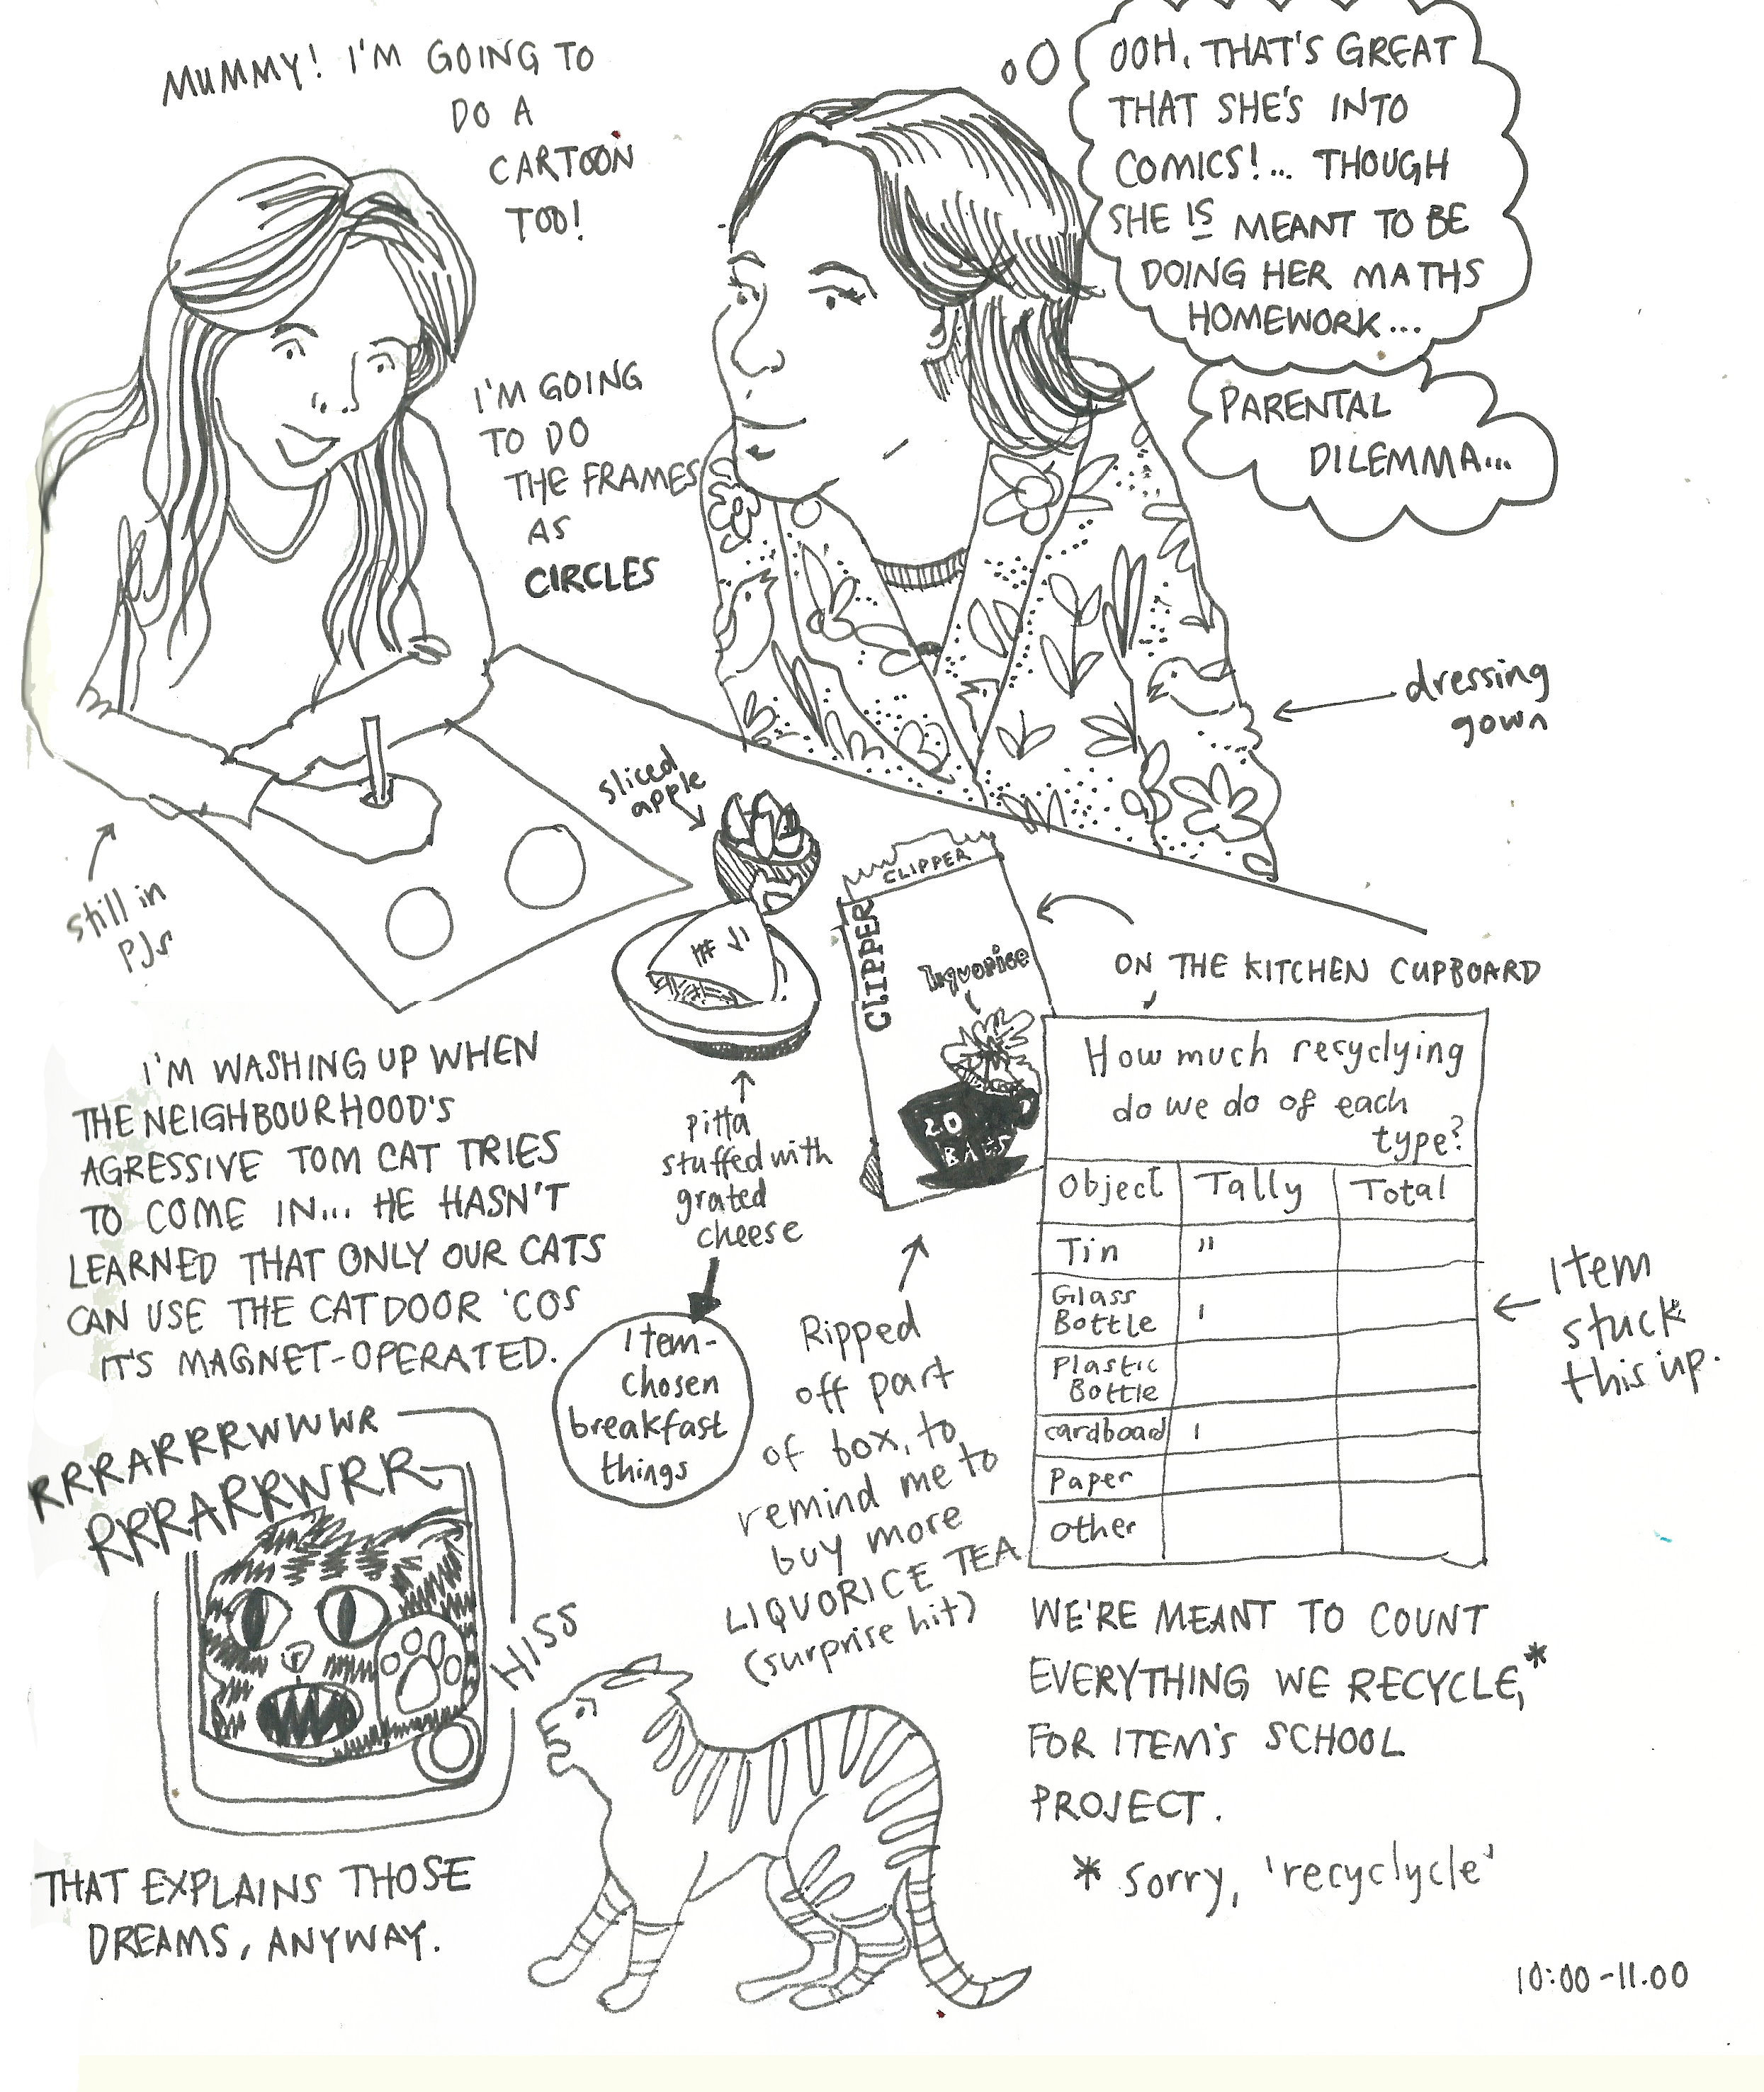 MUMMY! I'M GOING TO
DO A
CARTOON
TOO!
OOH, THAT'S GREAT
THAT SHE'S INTO
COMICS!... THOUGH
SHE IS MEANT TO BE
DOING HER MATHS
HOMEWORK...
PARENTAL
DILEMMA...
I'M GOING
TO DO
THE FRAMES
AS
CIRCLES
dressing
gown
still in
PJs
sliced
apple
CLIPPER
CLIPPER
liquorice
20
BAGS
pitta
stuffed with
grated
cheese
Item-
chosen
breakfast
things
Ripped
off part
of box, to
remind me to
buy more
LIQUORICE TEA
(surprise hit)
ON THE KITCHEN CUPBOARD
How much recyclying
do we do of each
type?
Object Tally Total
Tin 11
Glass
Bottle 1
Plastic
Bottle
cardboad 1
Paper
other
Item
stuck
this up.
WE'RE MEANT TO COUNT
EVERYTHING WE RECYCLE,*
FOR ITEM'S SCHOOL
PROJECT.
* Sorry, 'recyclycle'
I'M WASHING UP WHEN
THE NEIGHBOURHOOD'S
AGRESSIVE TOM CAT TRIES
TO COME IN... HE HASN'T
LEARNED THAT ONLY OUR CATS
CAN USE THE CATDOOR 'COS
IT'S MAGNET-OPERATED.
RRRARRRWWWR
RRRARRWRR
HISS
THAT EXPLAINS THOSE
DREAMS, ANYWAY.
10:00-11.00